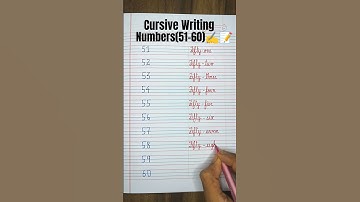 Cursive Writing
Numbers(51-60)✍️📝
51 fifty one
52 fifty-two
53 fifty-three
54 fifty-four
55 fifty-five
56 fifty-six
57 fifty-seven
58 fifty-eigh
59
60